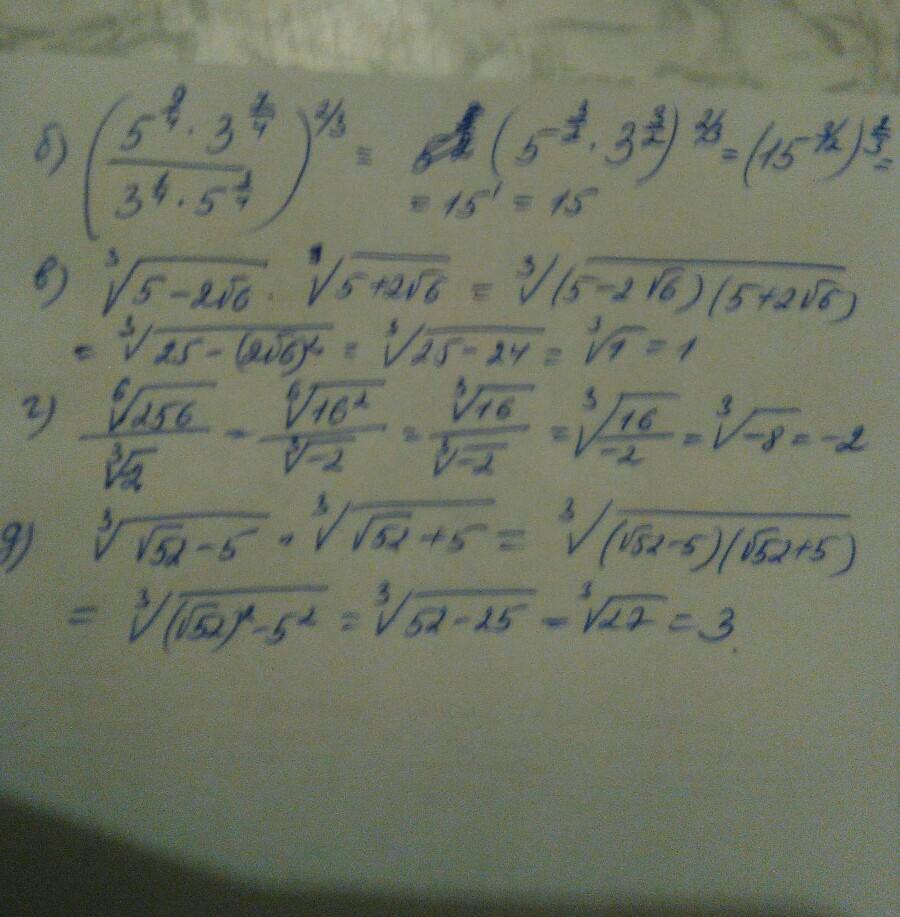 б) (5^{9/4} · 3^{7/4} / 3^{1/4} · 5^{3/4})^{2/3} = (5^{-3/2} · 3^{3/2})^{2/3} = (15^{-3/2})^{2/3} =
= 15¹ = 15
в) ∛(5-2√6) · ∛(5+2√6) = ∛((5-2√6)(5+2√6))
= ∛(25-(2√6)²) = ∛(25-24) = ∛1 = 1
г) ⁶√256 / ∛2 = ⁶√16² / ∛-2 = ∛16 / ∛-2 = ∛(16/-2) = ∛-8 = -2
д) ∛(√52-5) · ∛(√52+5) = ∛((√52-5)(√52+5))
= ∛((√52)²-5²) = ∛(52-25) = ∛27 = 3